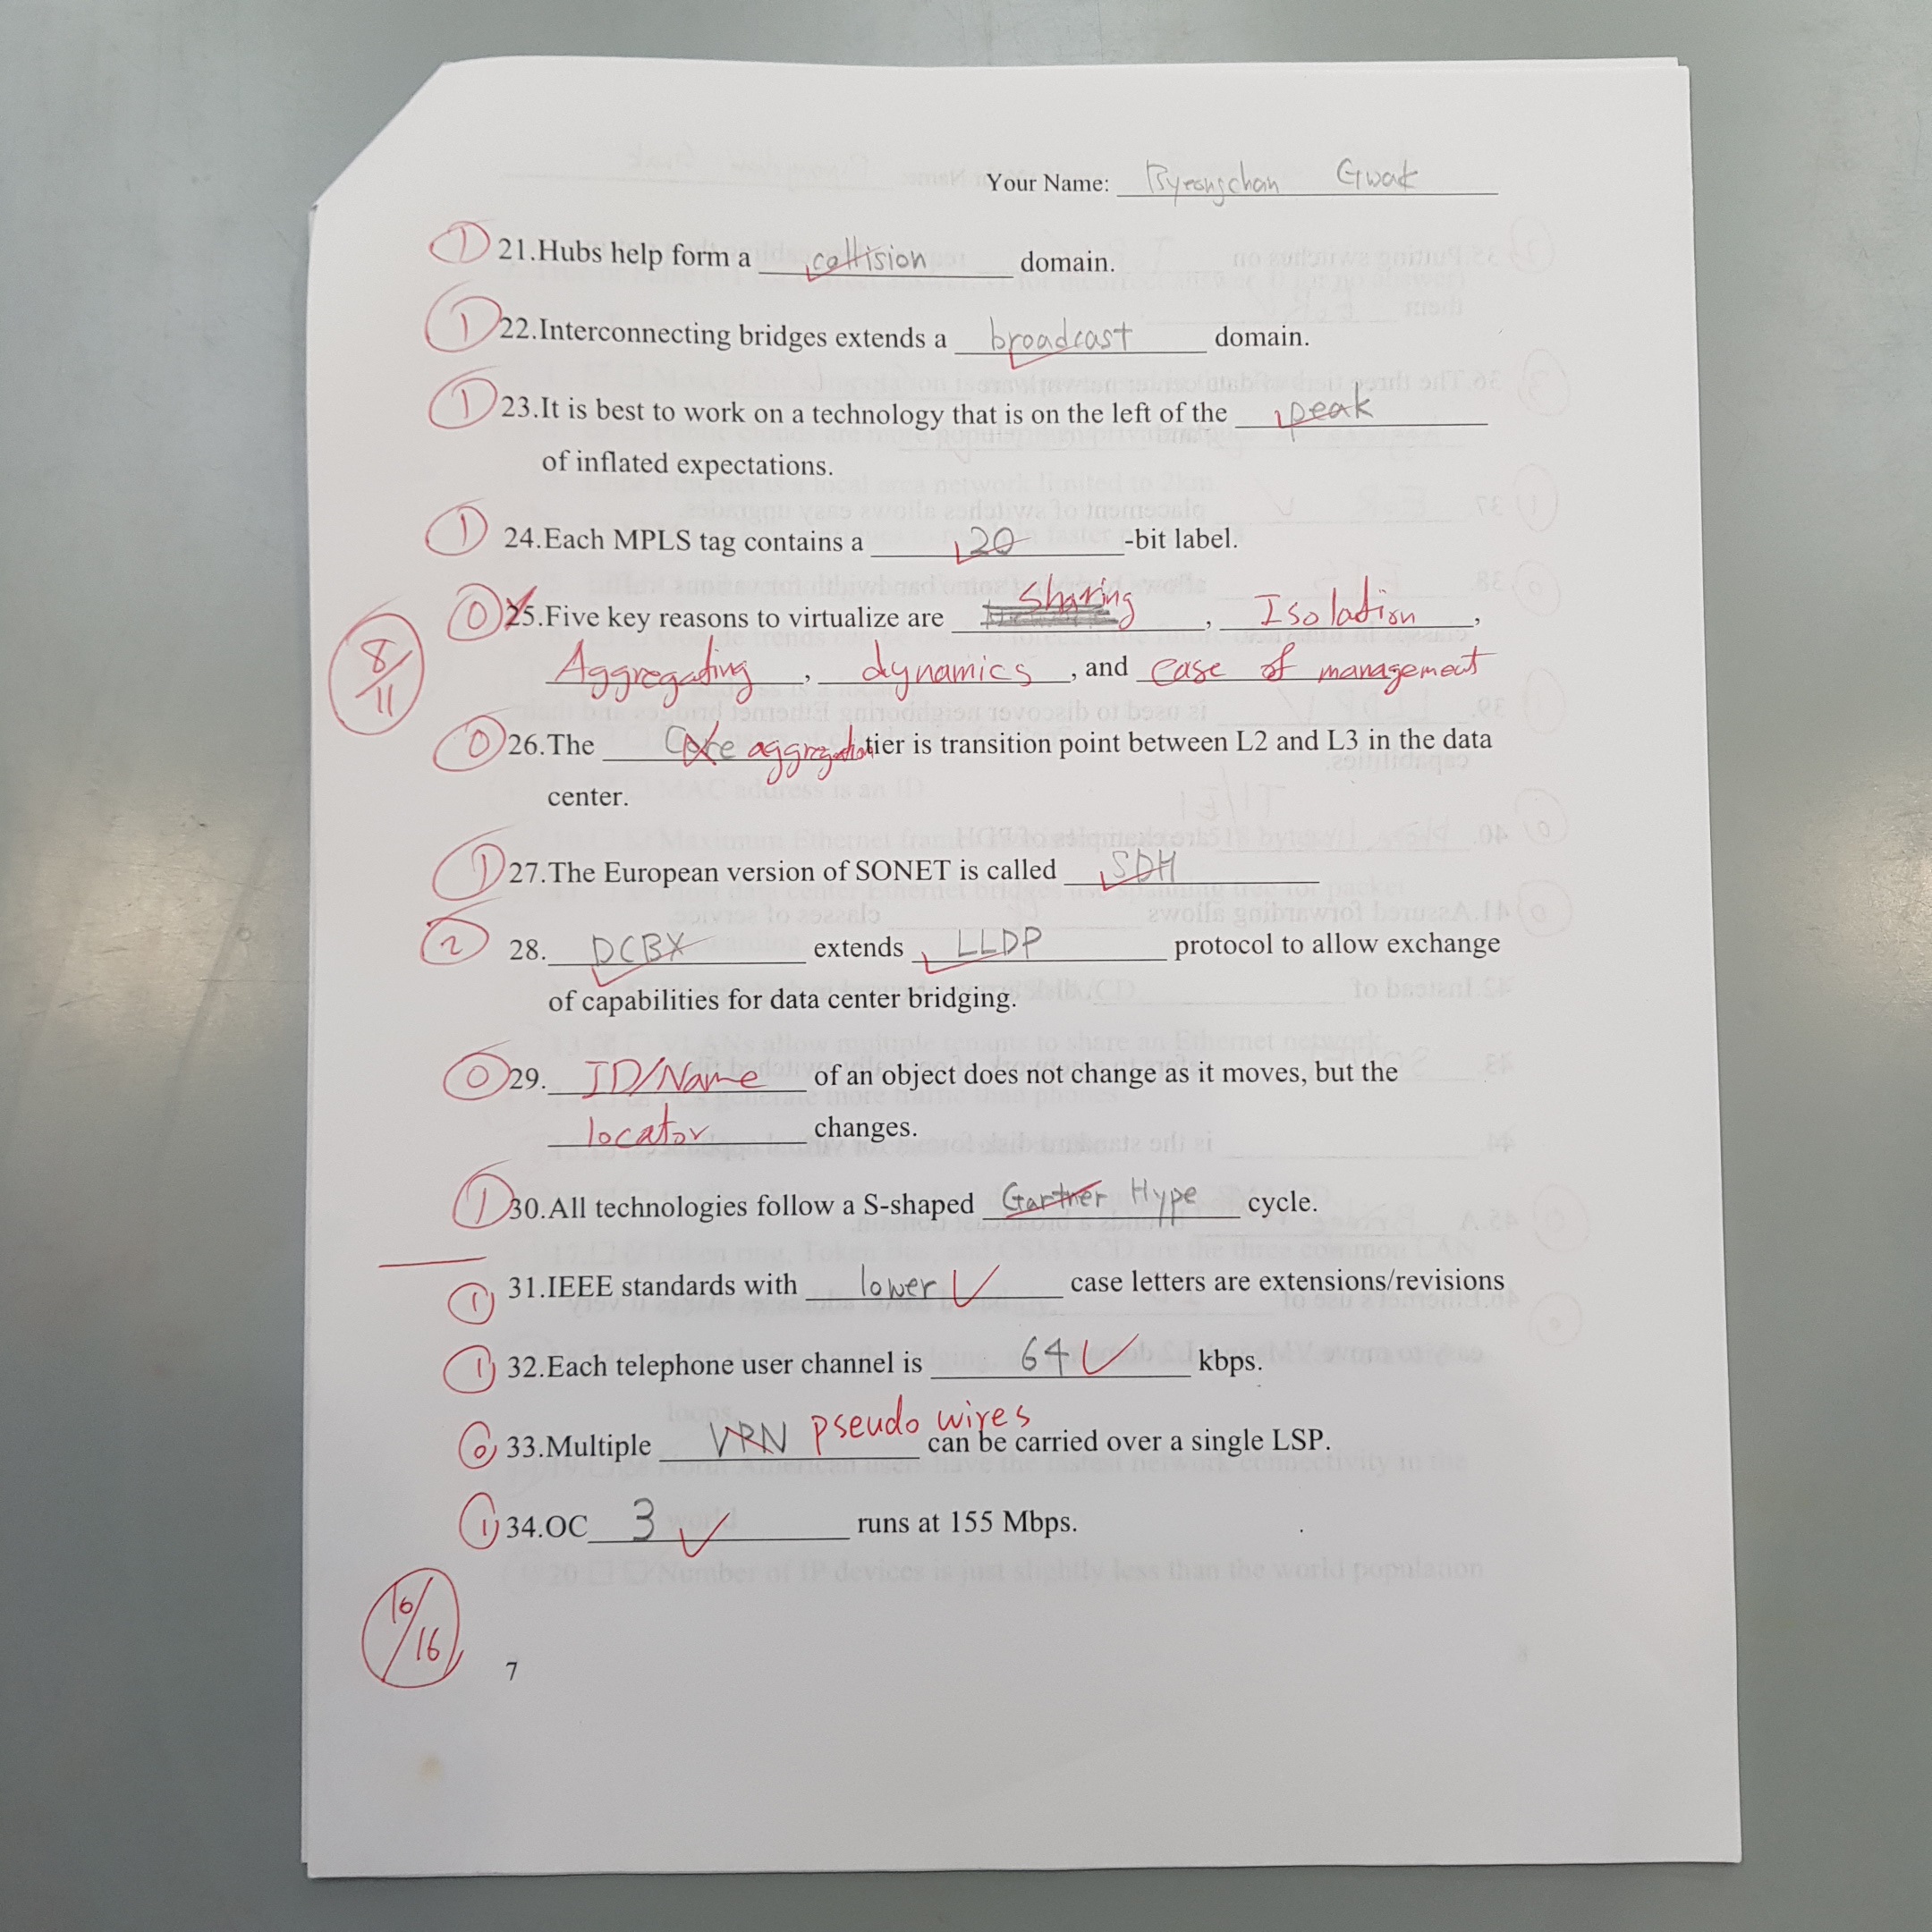 Your Name: Byeongchan Gwak
1 21.Hubs help form a collision domain.
1 22.Interconnecting bridges extends a broadcast domain.
1 23.It is best to work on a technology that is on the left of the peak
of inflated expectations.
1 24.Each MPLS tag contains a 20 -bit label.
0 25.Five key reasons to virtualize are Sharing, Isolation,
8/11
Aggregating, dynamics, and ease of management
0 26.The Core aggregation tier is transition point between L2 and L3 in the data
center.
1 27.The European version of SONET is called SDH
2 28. DCBX extends LLDP protocol to allow exchange
of capabilities for data center bridging.
0 29. ID/Name of an object does not change as it moves, but the
locator changes.
1 30.All technologies follow a S-shaped Gartner Hype cycle.
1 31.IEEE standards with lower case letters are extensions/revisions
1 32.Each telephone user channel is 64 kbps.
0 33.Multiple VPN pseudo wires can be carried over a single LSP.
1 34.OC 3 runs at 155 Mbps.
/16
7